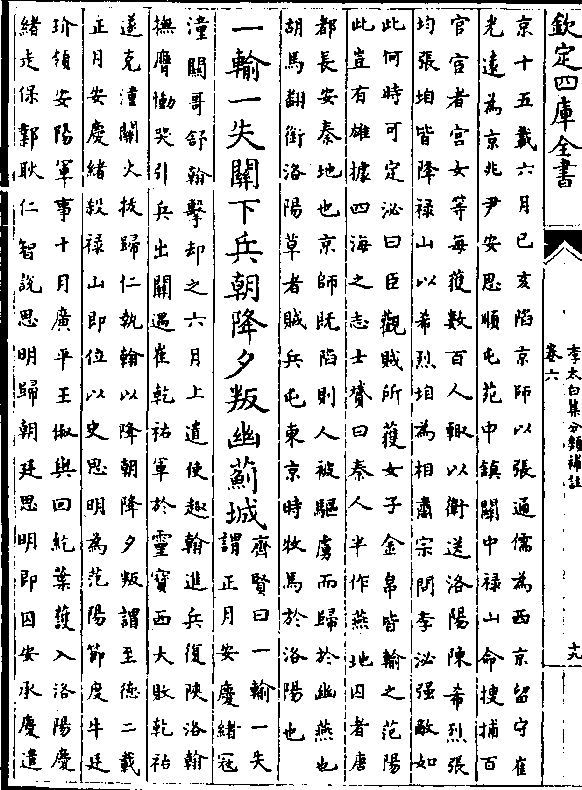 欽定四庫全書
李太白集分類補註
卷六
京十五載六月已亥陷京師以張通儒為西京留守崔
光遠為京兆尹安思順屯苑中鎮關中禄山命搜捕百
官宦者宫女等每獲數百人輙以衛送洛陽陳希烈張
均張垍皆降禄山以希烈垍為相肅宗問李泌强敵如
此何時可定泌曰臣觀賊所獲女子金帛皆輸之范陽
此豈有雄據四海之志士贇曰秦人半作燕地囚者唐
都長安秦地也京師既陷則人被驅虜而歸於幽燕也
胡馬翻銜洛陽草者賊兵屯東京時牧馬於洛陽也
一輸一失關下兵朝降夕叛幽薊城
齊賢曰一輸一失
謂正月安慶緒冦
潼關哥舒翰擊却之六月上遣使趣翰進兵復陜洛翰
撫膺慟哭引兵出關遇崔乾祐軍於靈寳西大敗乾祐
遂克潼關火拔歸仁執翰以降朝降夕叛謂至德二載
正月安慶緒殺禄山即位以史思明為范陽節度牛廷
玠領安陽軍事十月廣平王俶與回紇葉護入洛陽慶
緒走保鄴耿仁智說思明歸朝廷思明即囚安承慶遣